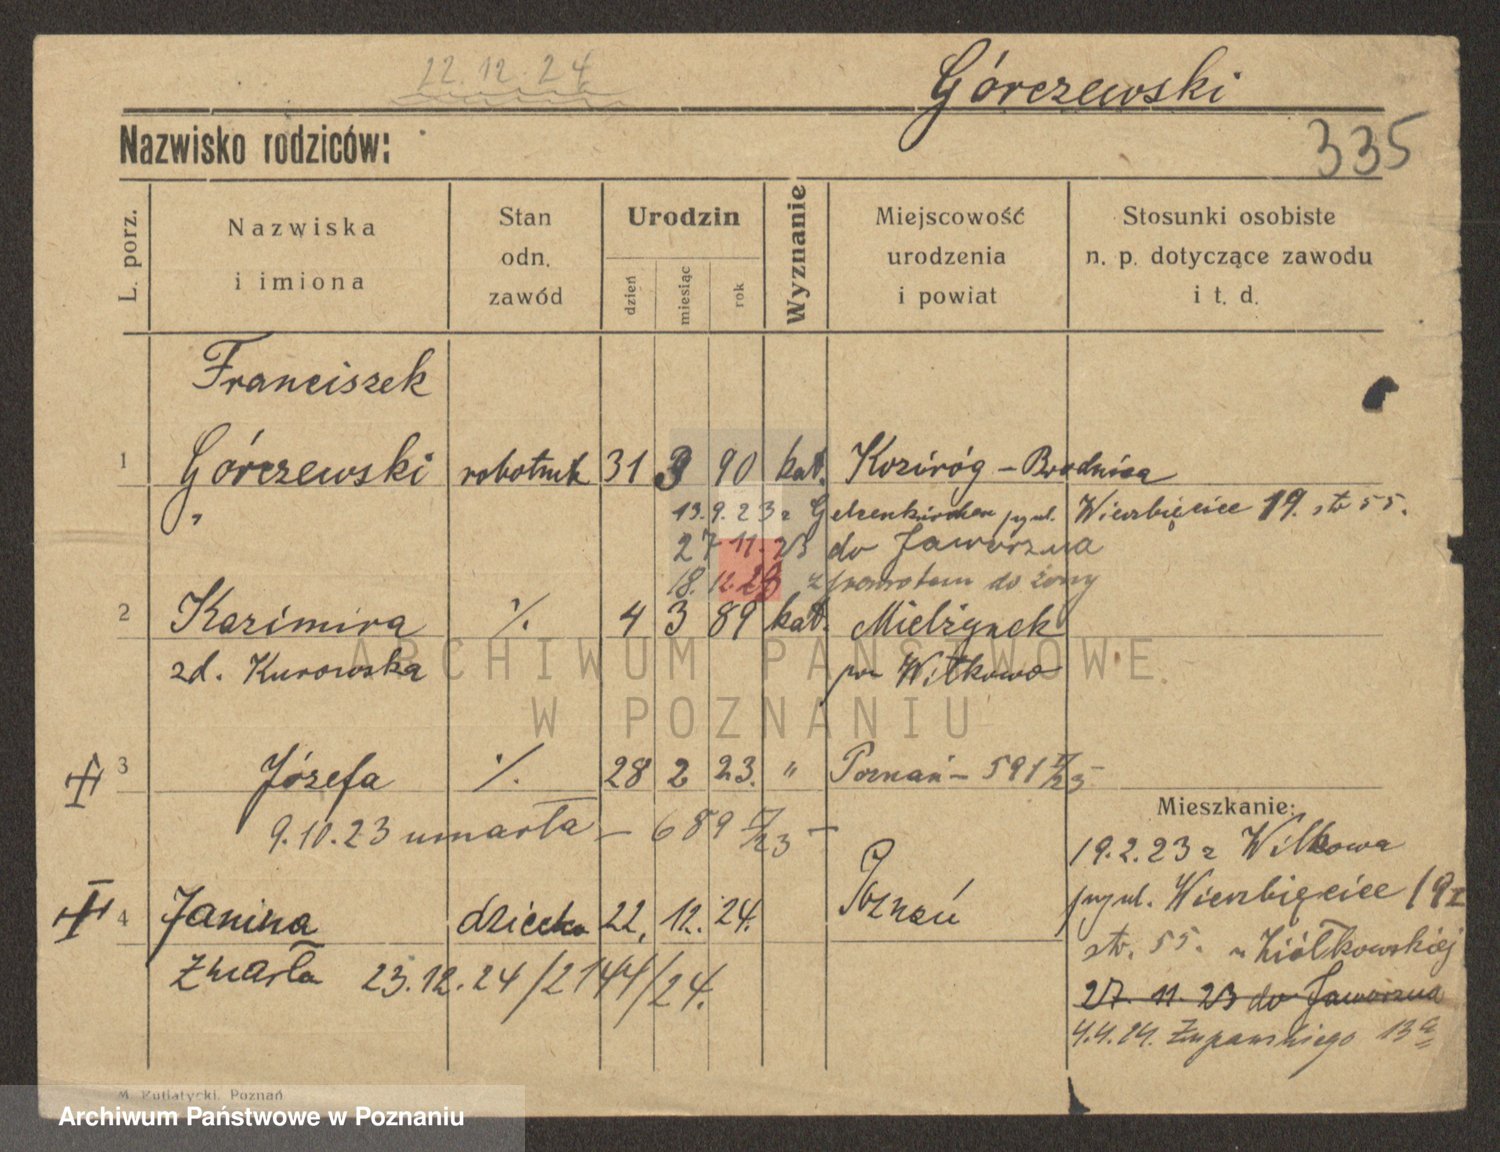 22.12.24
Górczewski
335
Nazwisko rodziców:
L. porz.
Nazwiska
i imiona
Stan
odn.
zawód
Urodzin
dzień
miesiąc
rok
Wyznanie
Miejscowość
urodzenia
i powiat
Stosunki osobiste
n. p. dotyczące zawodu
i t. d.
Franciszek
1 Górczewski robotnik 31 3 90 kat. Koziróg - Brodnica
" 13.9.23 z Gelsenkirchen przyul. Wierzbięcice 19. str 55.
27 11. 23 do Jaworzna
18. 12. 23 z powrotem do żony
2 Kazimira ./. 4 3 89 kat. Mielżynek
zd. Kurowska pow Witkowo
ARCHIWUM PAŃSTWOWE
W POZNANIU
3 Józefa ./. 28 2 23. " Poznań - 591
9.10.23 umarła - 689
Mieszkanie:
19.2.23 z Witkowa
przyul. Wierzbięcice 19
str. 55. u Ziółkowskiej
27. 11. 23 do Jaworzna
4.4.24. Żupańskiego 13a
4 Janina dziecko 22. 12. 24. Poznań
Zmarła 23.12.24/2144/24.
M. Putiatycki, Poznań
Archiwum Państwowe w Poznaniu